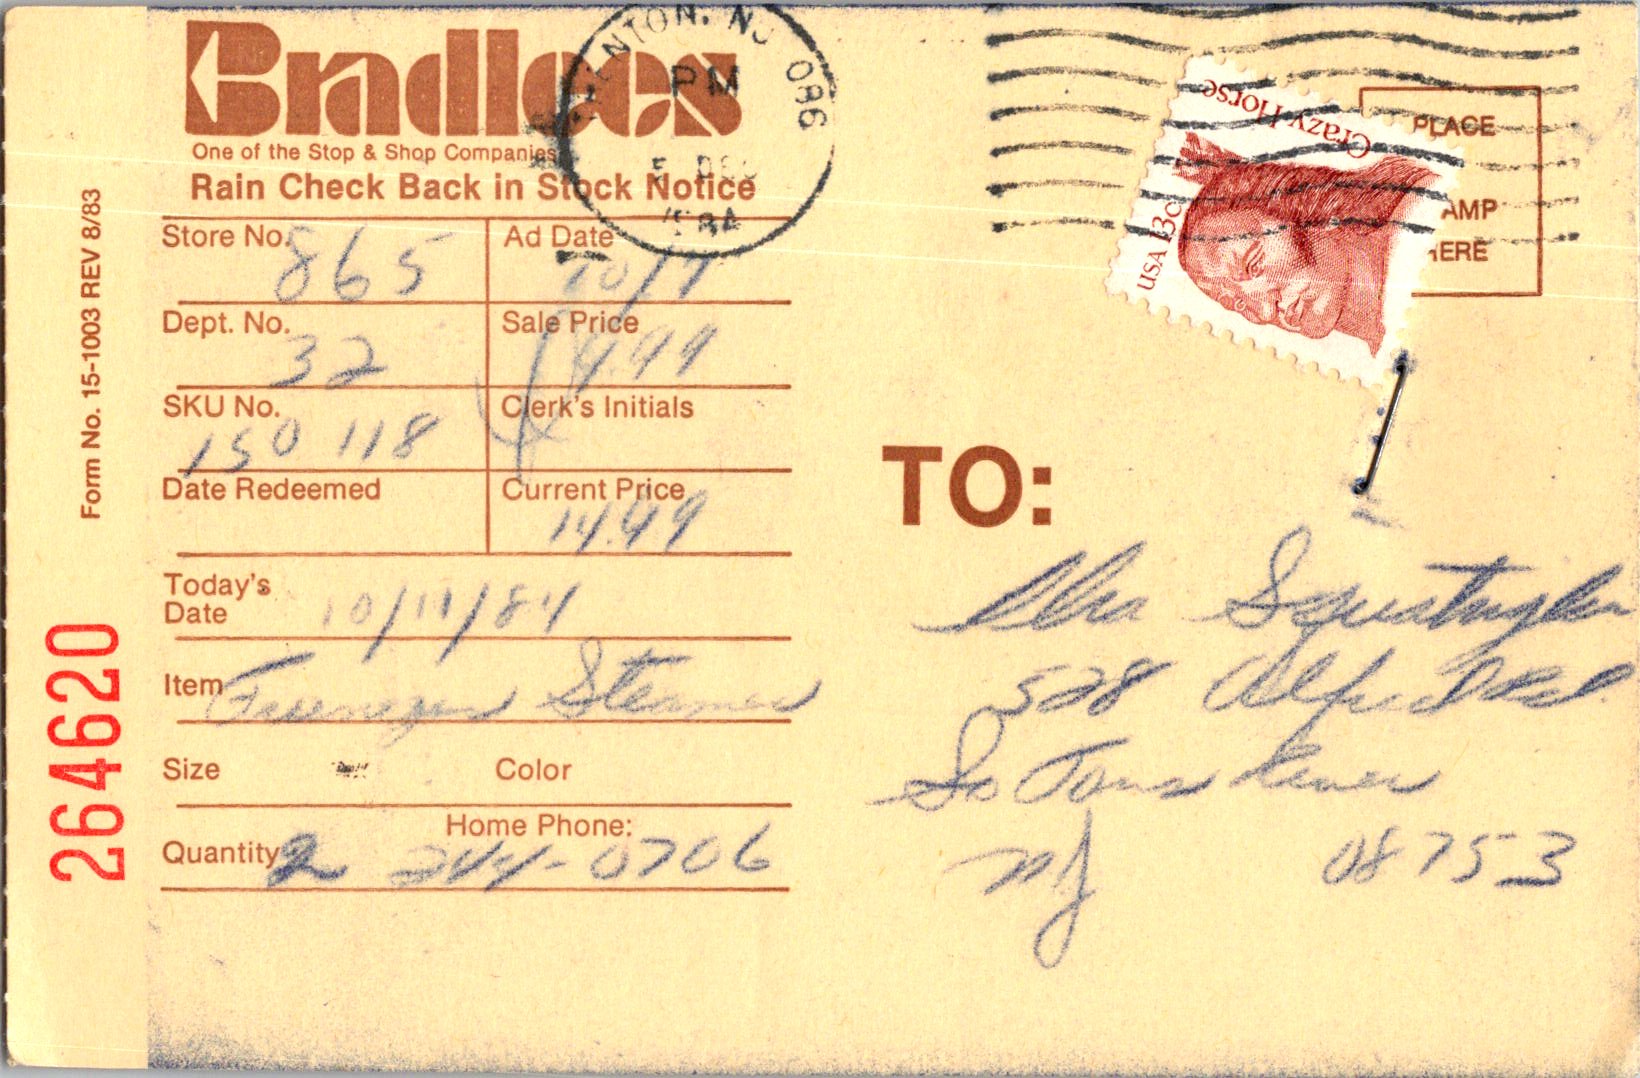 Bradlees
One of the Stop & Shop Companies
Rain Check Back in Stock Notice
Store No. 865
Ad Date 10/7
Dept. No. 32
Sale Price 9.99
SKU No. 150 118
Clerk's Initials
Date Redeemed
Current Price 14.99
Today's
Date 10/11/84
Item Steamer
Size Color
Home Phone:
Quantity 2 244-0706
Form No. 15-1003 REV 8/83
264620
TRENTON, NJ 086
PM
5 DEC
1984
Crazy Horse
USA 13c
PLACE
AMP
HERE
TO:
528 Alfred Rd.
So Toms River
NJ 08753